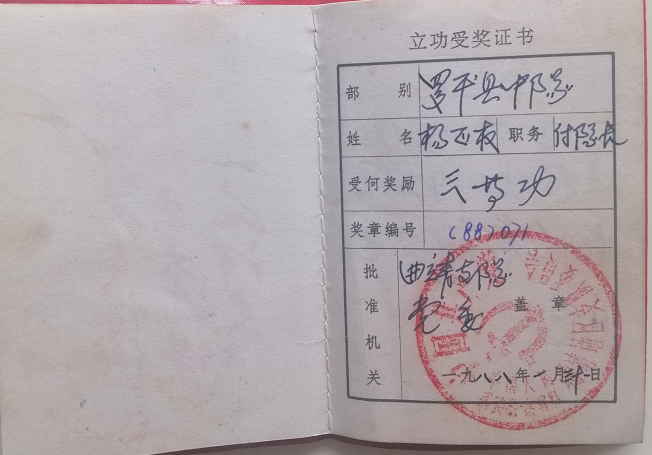 立功受奖证书
部别 罗平县中队
姓名 杨正权 职务 付队长
受何奖励 三等功
奖章编号 (88)071
批准机关 曲靖支队
党委 盖章
一九八八年一月三十一日